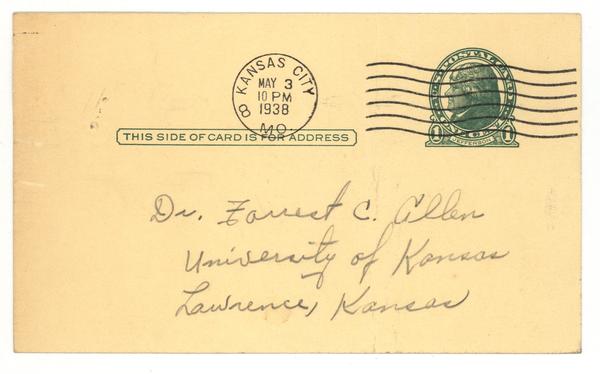 KANSAS CITY
8
MAY 3
10 PM
1938
MO.
U.S. POSTAL CARD
1 ONE CENT 1
JEFFERSON
THIS SIDE OF CARD IS FOR ADDRESS
Dr. Forrest C. Allen
University of Kansas
Lawrence, Kansas